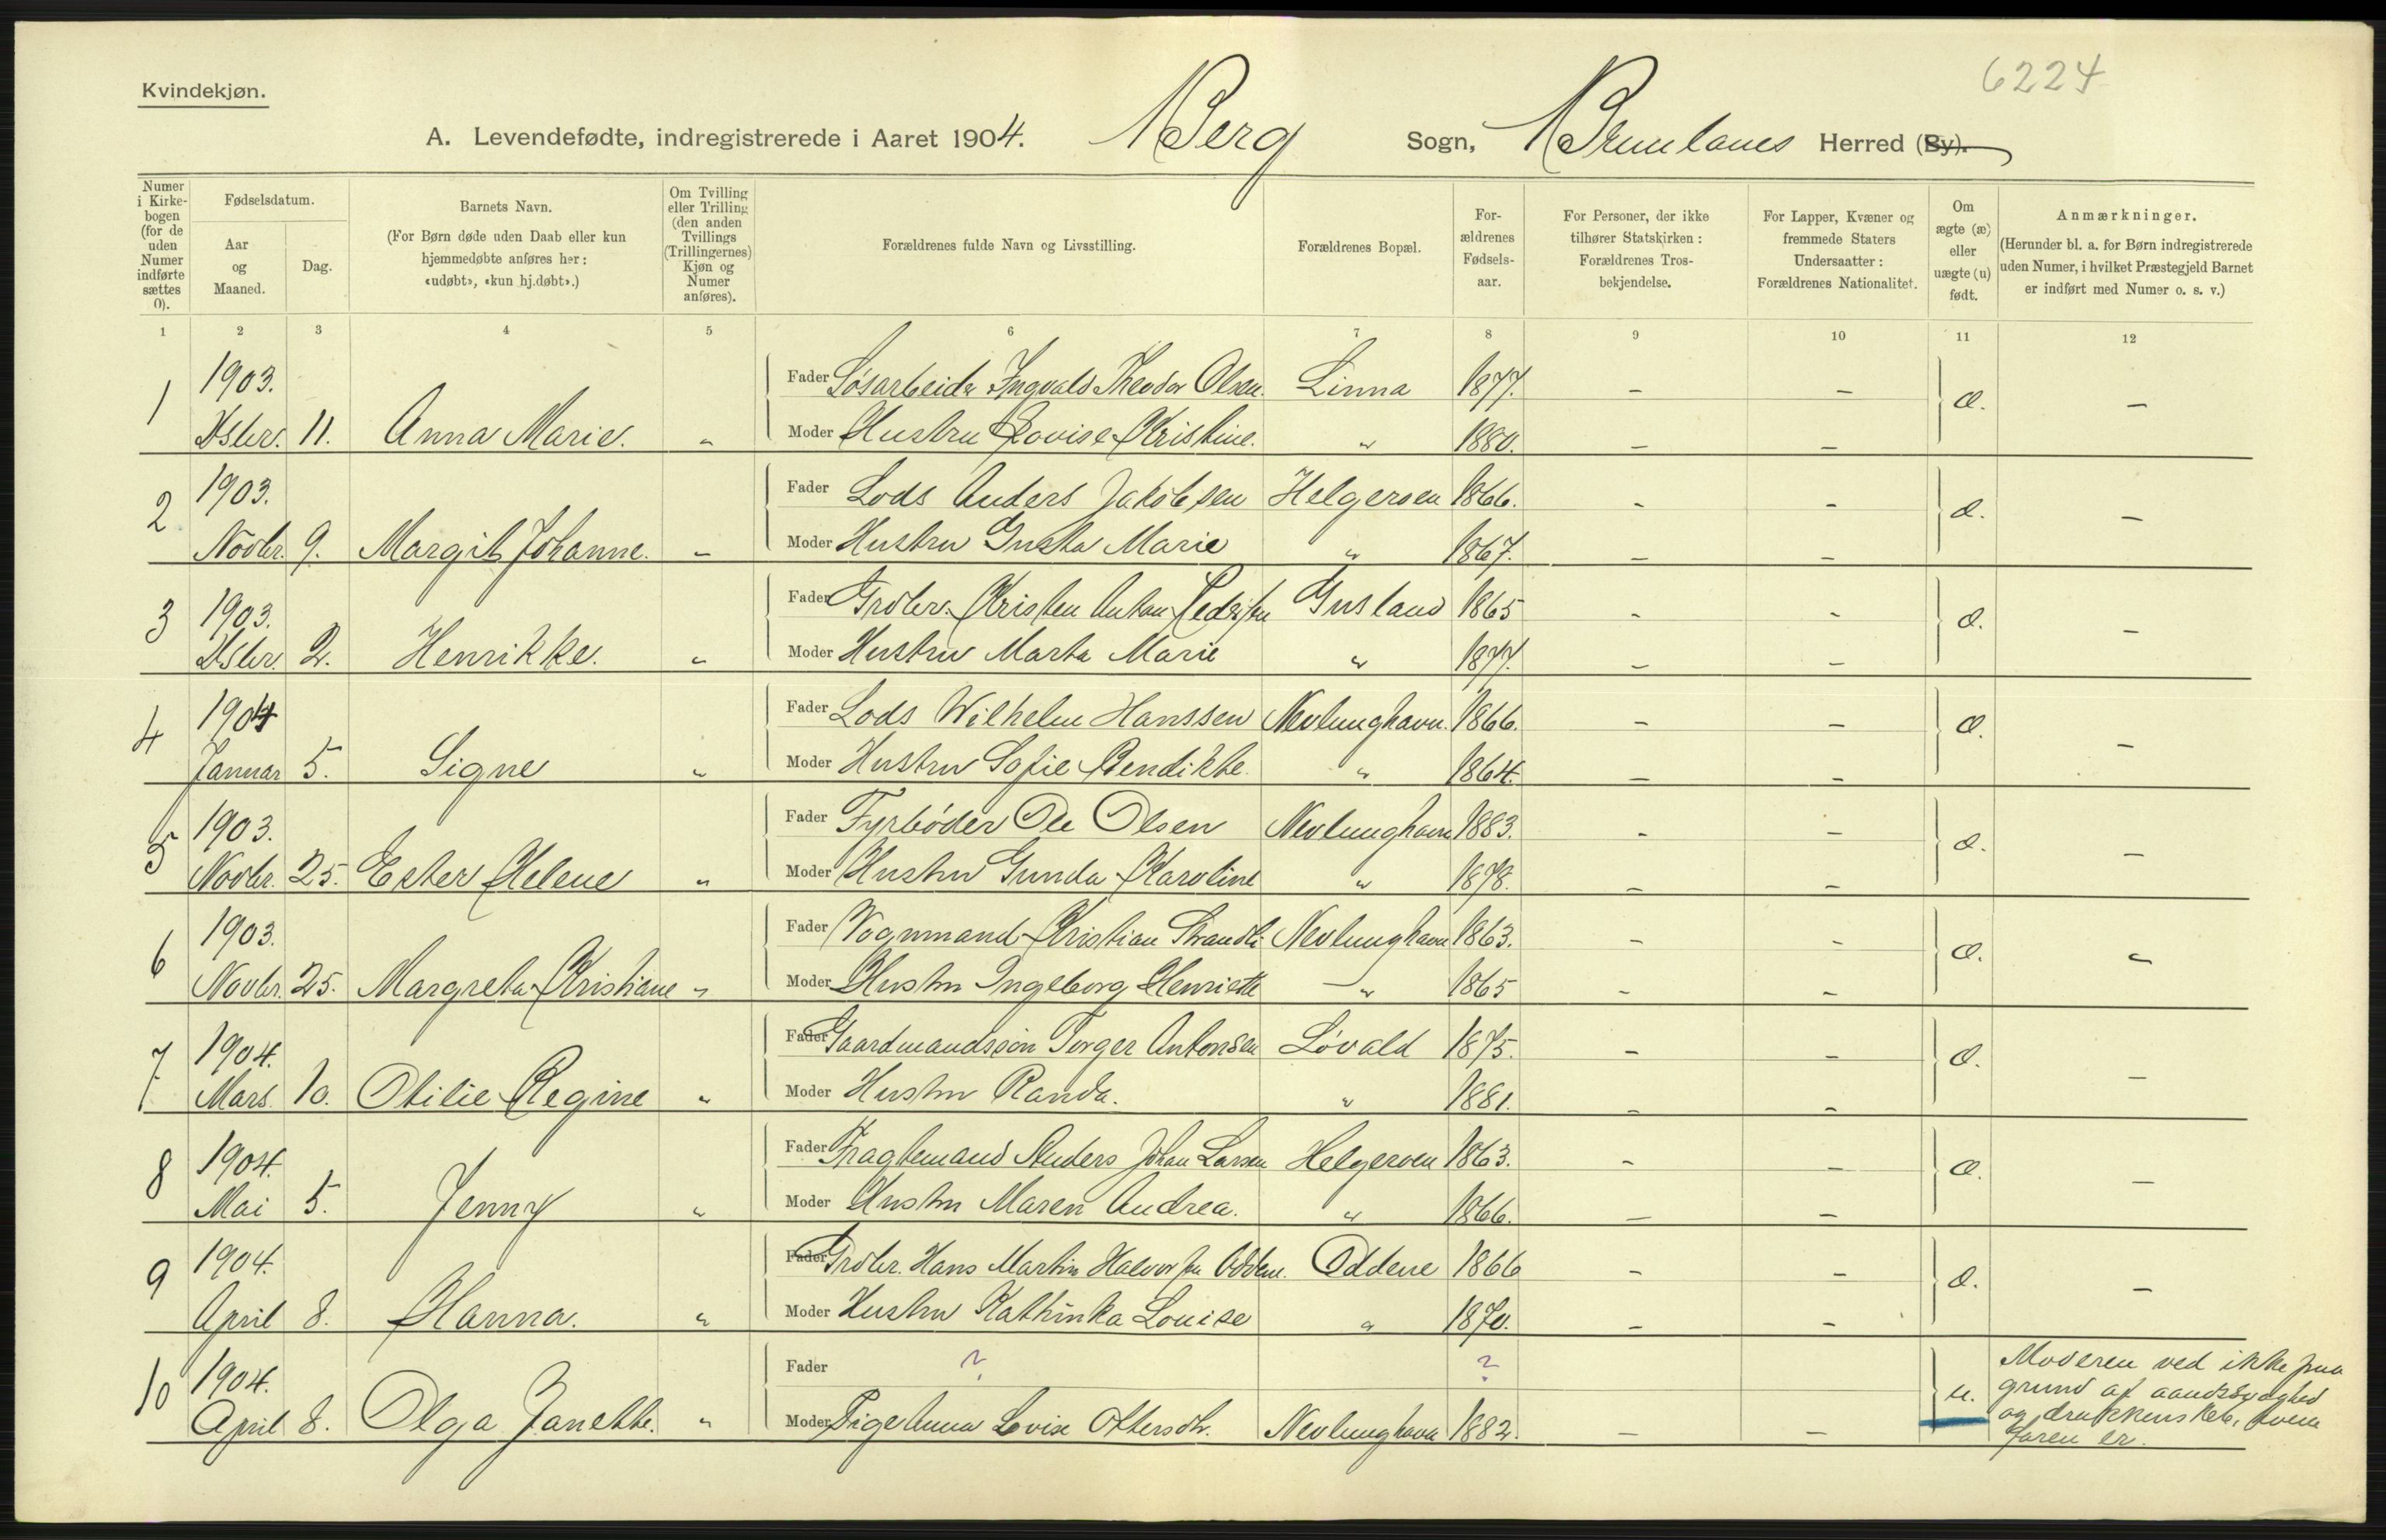 6224
Kvindekjøn.
A. Levendefødte, indregistrerede i Aaret 1904. Berg Sogn, Brunlanes Herred (By).
Numer i Kirke-bogen (for de uden Numer indførte sættes 0).
Fødselsdatum.
Aar og Maaned.
Dag.
Barnets Navn.
(For Børn døde uden Daab eller kun hjemmedøbte anføres her: «udøbt», «kun hj.døbt».)
Om Tvilling eller Trilling (den anden Tvillings (Trillingernes) Kjøn og Numer anføres).
Forældrenes fulde Navn og Livsstilling.
Forældrenes Bopæl.
For-ældrenes Fødsels-aar.
For Personer, der ikke tilhører Statskirken: Forældrenes Tros-bekjendelse.
For Lapper, Kvæner og fremmede Staters Undersaatter: Forældrenes Nationalitet.
Om ægte (æ) eller uægte (u) født.
Anmærkninger.
(Herunder bl. a. for Børn indregistrerede uden Numer, i hvilket Præstegjeld Barnet er indført med Numer o. s. v.)
1 2 3 4 5 6 7 8 9 10 11 12
1 1903. Fader Løsarbeider Ingvald Theodor Olsen. Linna 1877. – – æ. –
Dsbr. 11. Anna Marie. " Moder Hustru Lovise Kristine. " 1880. – –
2 1903. Fader Lods Anders Jakobsen Helgeroen 1866. – – æ. –
Novbr. 9. Margit Johanne. – Moder Hustru Gusta Marie " 1867. – –
3 1903. Fader Grdbr. Kristen Anton Pedersen Gusland 1865 – – æ. –
Dsbr. 2. Henrikke. " Moder Hustru Marta Marie " 1877. – –
4 1904 Fader Lods Wilhelm Hanssen Nevlunghavn. 1866. – – æ. –
Januar 5. Signe " Moder Hustru Sofie Bendikte. " 1864. – –
5 1903. Fader Fyrbøder Ole Olsen Nevlunghavn 1883. – – æ. –
Novbr. 25. Ester Helene " Moder Hustru Gunda Karoline " 1878. – –
6 1903. Fader Vognmand Kristian Strandli Nevlunghavn 1863. – – æ. "
Novbr. 25. Margreta Kristiane " Moder Hustru Ingeborg Henriette – " 1865 – –
7 1904. Fader Gaardmandssøn Torger Antonsen Løvald 1875. – – æ. –
Mars 10. Otilie Regine " Moder Hustru Randa. " 1881. – –
8 1904. Fader Fragtemand Anders Johan Larsen Helgeroen 1863. – – æ. –
Mai 5. Jenny " Moder Hustru Maren Andrea. " 1866. – –
9 1904. Fader Grdbr. Hans Martin Halvorsen Oddene. Oddene 1866 – – æ. –
April 8. Hanna. " Moder Hustru Kathinka Louise " 1870. – –
10 1904. Fader ? ? u. Moderen ved ikke paa
grund af aandssvaghed
April 8. Olga Janette. " Moder Pige Anna Lovise Ottersdtr. Nevlunghavn 1882. – – og drukkenskab, hvem
faren er.